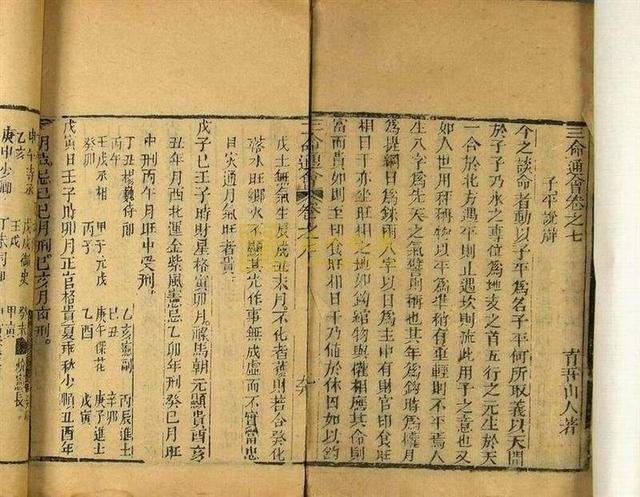 三命通會卷之七
育吾山人著
子平說辯
今之談命者動以子平為名子平何所取義以天開
於子子乃水之專位為地支之首五行之元生於天
一合於北方遇平則止遇坎則流此用子之意也又
如人世用秤稱物以平為準稍有重輕則不平焉人
生八字為先天之氣譬則稱也其年為鈎時為權月
為提綱日為銖兩八字以日為主中有財官印食與
相日干亦坐旺相之地如鈎綰物與權相應其命則
富而貴如則主印食旺相日干乃値於休囚如以鈎
三命通會
卷之八
戊土無氣生辰戌丑未月不化者藏財若合癸化
落水旺鄉火不顯其光作事無成虛而不實
通月氣旺者貴
戊子日壬子時財星格寅卯月祿馬朝元顯貴酉亥
丑年月西北運金紫風憲忌乙卯年刑癸巳月旺
中刑丙午月旺中受刑
丁丑楊巍侍郎
乙亥
丙辰進士
丙午
己丑
辛卯
壬戌丞相
甲子元戎
庚午保花
庚子進士
癸卯
丙子
乙酉
戊寅
戊寅日壬子時卯月正官格貴夏乖秋少順丑酉年
月忌己巳月刑己亥月兩刑
乙亥
壬戌御史
癸未
庚申少卿
壬戌
甲寅
丁未